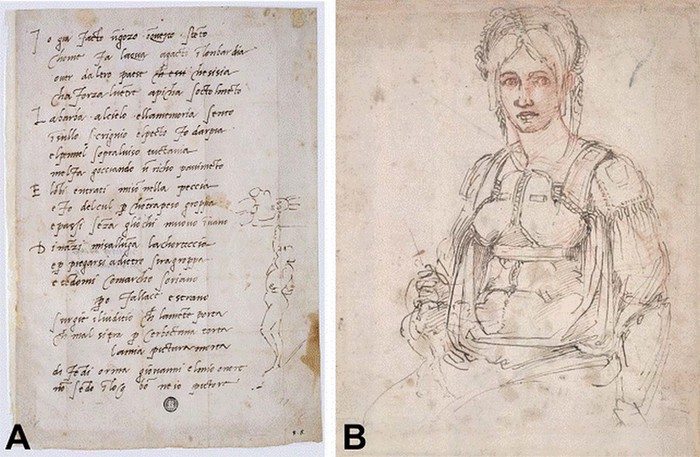 I o gia facto ngozo inquesto steto
chome fa lacqua agacti inlombardia
over daltro paese chesisia
cha forza luetre apicha socto lmeto
L abarba alcielo ellamemoria sento
isullo scrignio elpecto fo darpia
elpennel sopraluiso tuctavia
melfa gocciando u richo pauimeto
E lobi entrati miso nella peccia
e fo delcul p chotrapeso groppa
epassi seza gliochi muouo inuano
D inazi misalluga lachorteccia
e p piegarsi adietro siragroppa
e tendomi Comarcho soriano
po fallace e strano
surgie iliuditio ch lamete porta
ch mal sitra p cerboctana torta
lamia pictura morta
di fedi orma giovanni elmio onore
no sedo i loco bo ne io pictore
A
B